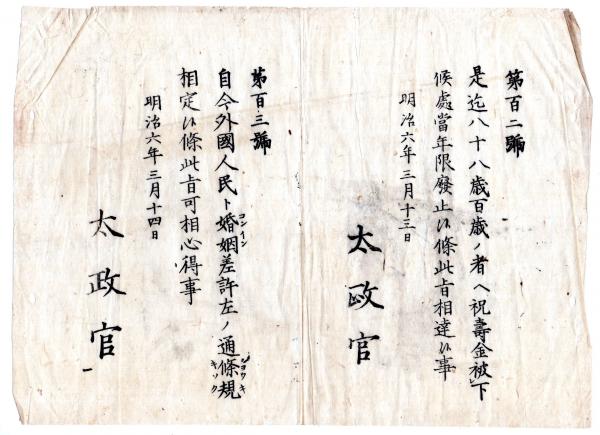 第百二號
是迄八十八歳百歳ノ者ヘ祝壽金被下
候處當年限廢止候條此旨相達候事
明治六年三月十三日
太政官
第百三號
コンイン
ジヨウキ
自今外國人民ト婚姻差許左ノ通條規
キソク
相定候條此旨可相心得事
明治六年三月十四日
太政官